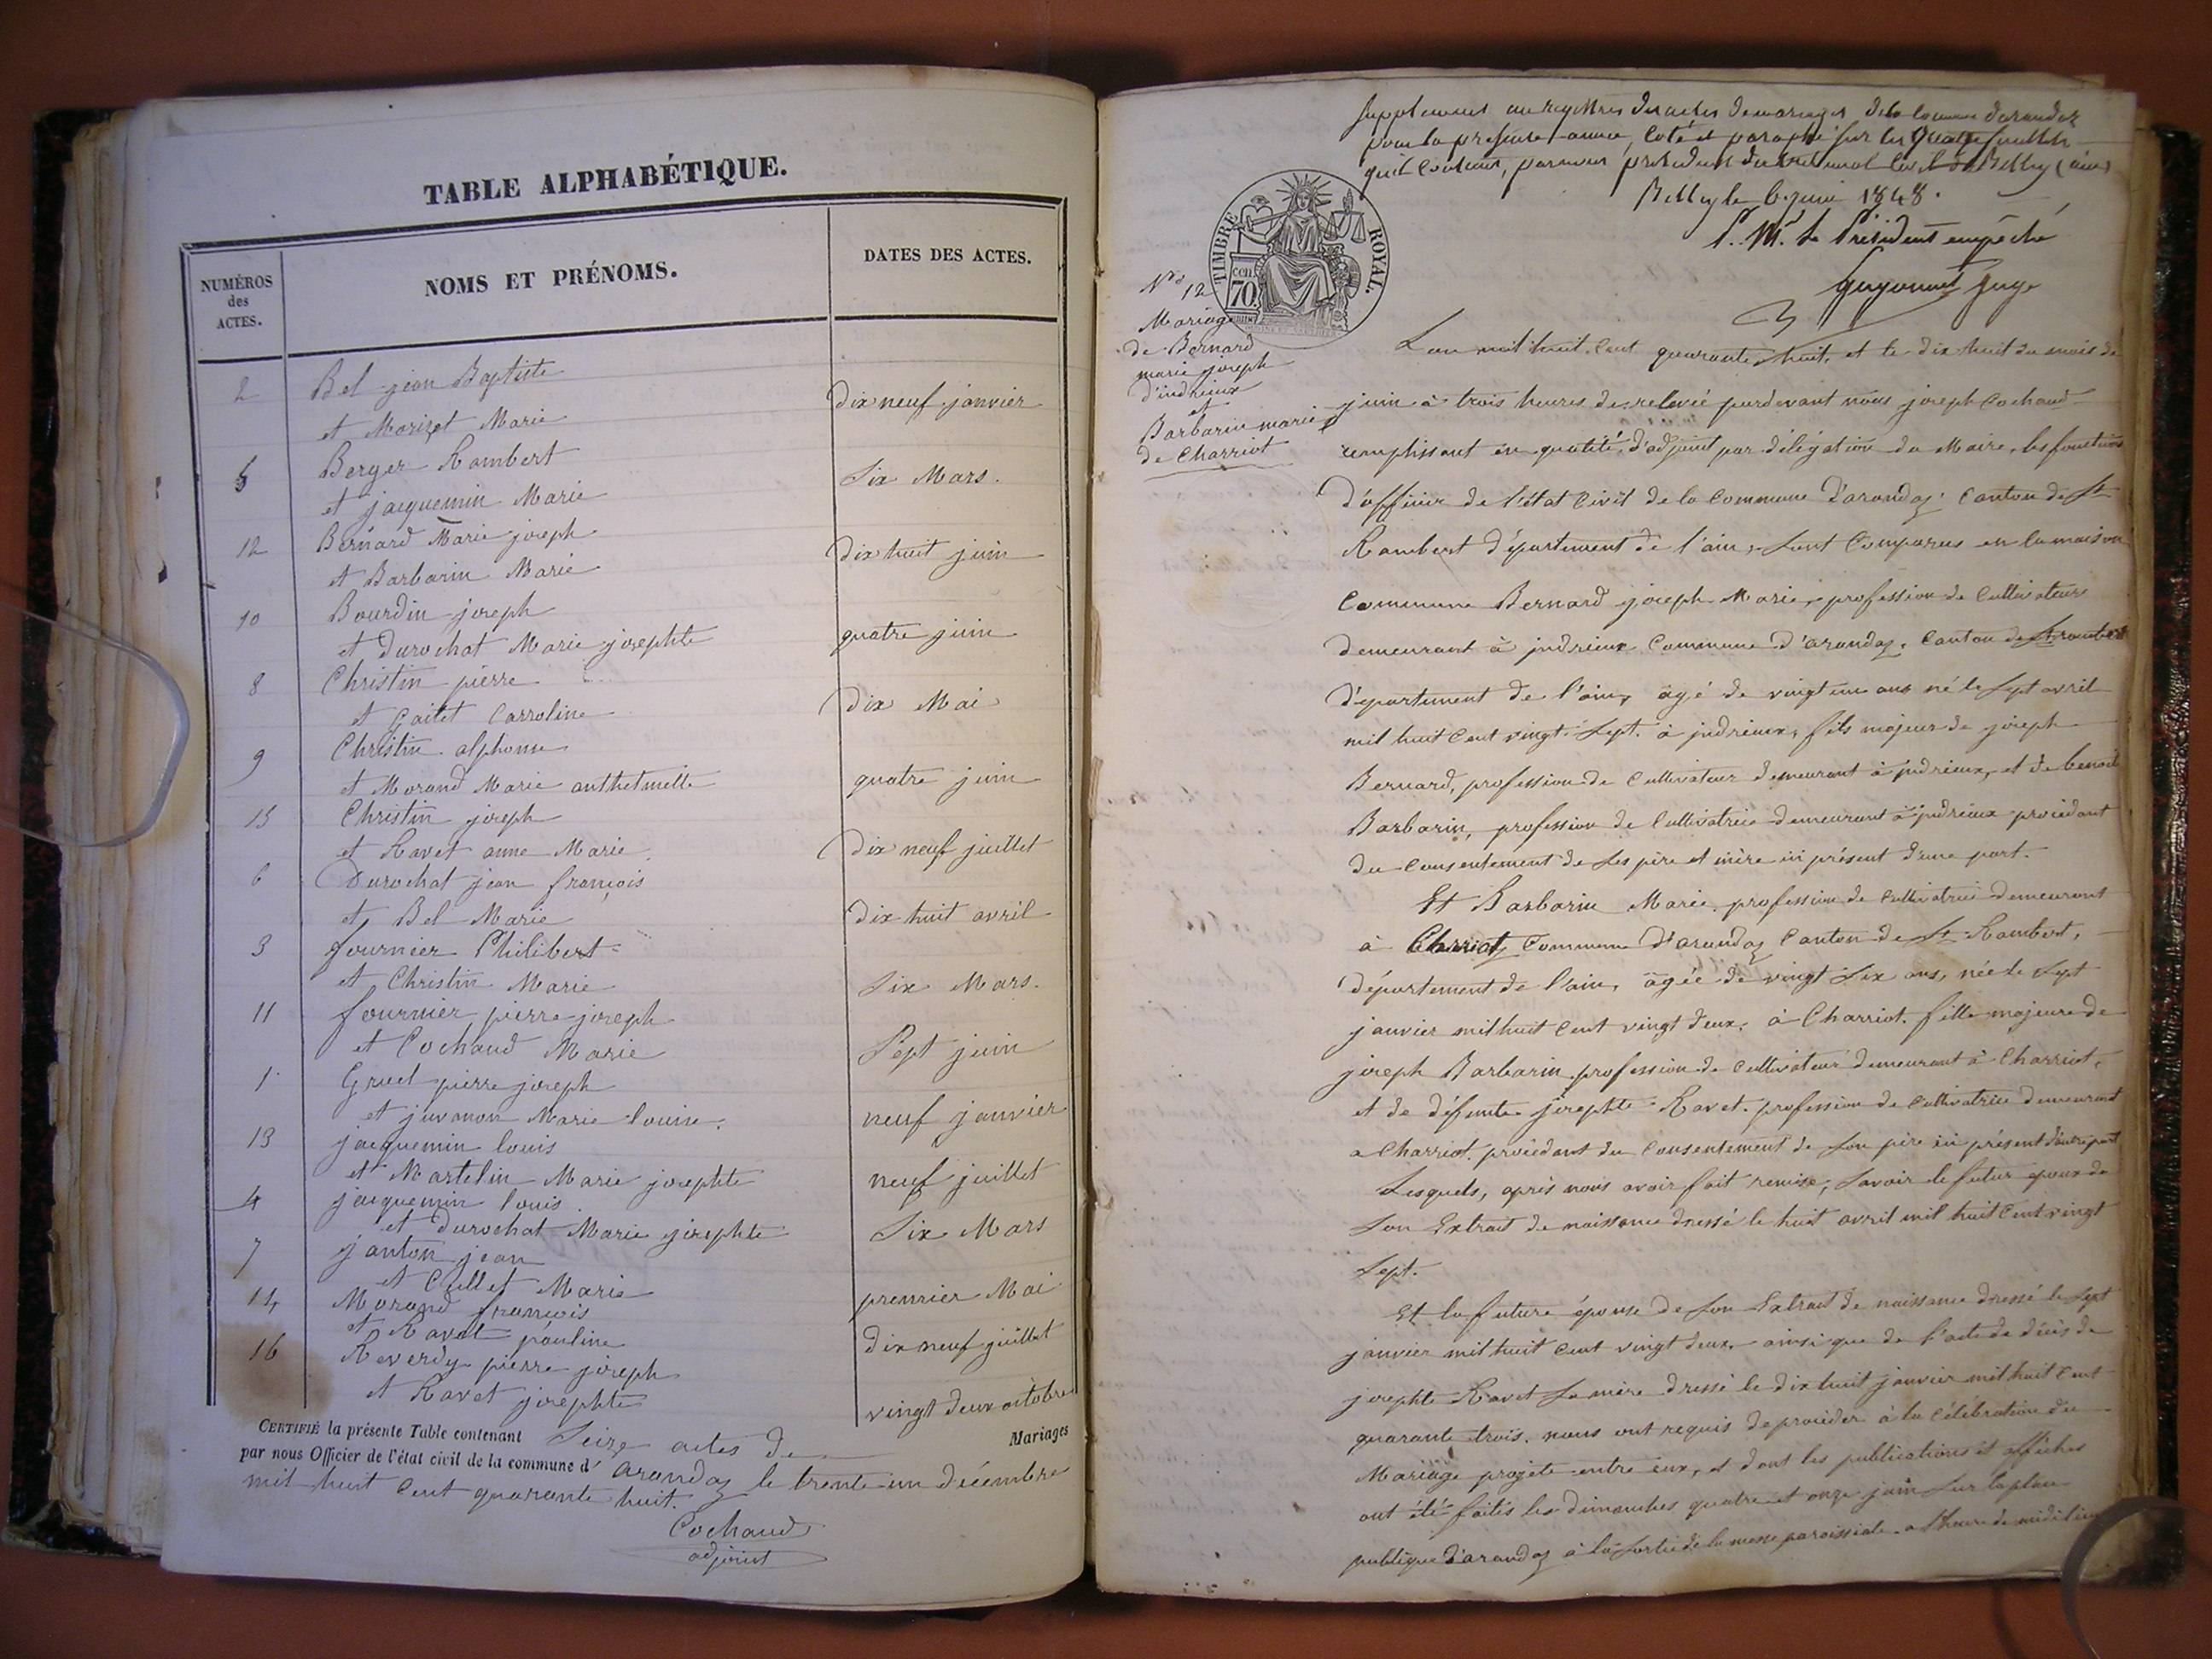 TABLE ALPHABÉTIQUE.
NUMÉROS
des
ACTES.
NOMS ET PRÉNOMS.
DATES DES ACTES.
2 Bel jean Baptiste
et Morizet Marie dix neuf janvier
5 Berger Rambert
et jacquemin Marie Six Mars.
12 Bernard Marie joseph
et Barbarin Marie dix huit juin
10 Bourdin joseph
et Durochat Marie josephte quatre juin
8 Christin pierre
et gaitet Carroline dix Mai
9 Christin alphonse
et Morand Marie anthelmette quatre juin
15 Christin joseph
et Ravet anne Marie dix neuf juillet
6 Durochat jean françois
et Bel Marie dix huit avril
3 fournier Philibert
et Christin Marie Six Mars.
11 fournier pierre joseph
et Cochaud Marie Sept juin
1 Gruel pierre joseph
et juvanon Marie louise. neuf janvier
13 jacquemin louis
et Martelin Marie josephte neuf juillet
4 jacquemin louis.
et Durochat Marie josephte Six Mars
7 janton jean
et Cullet Marie premier Mai
14 Morand françois
et Ravet pauline dix neuf juillet
16 Reverdy pierre joseph
et Ravet josephte vingt deux octobre
CERTIFIÉ la présente Table contenant Seize actes de Mariages
par nous Officier de l'état civil de la commune d' arandaz le trente un décembre
mil huit cent quarante huit.
Cochaud
adjoint
Supplement au registres des actes de mariages de la commune darandaz
pour la presente annee, coté et paraphé sur les quatre feuillets
quil contient, par nous président du tribunal civil de Belley (ain)
Belley le 6 juin 1848.
P. Mr. le Président empêché
juge
TIMBRE ROYAL.
cen
70
No 12
Mariage
de Bernard
marie joseph
d'indrieux
et
Barbarin marie
de Charriot
L'an mil huit cent quarante huit, et le dix huit du mois de
juin à trois heures de relevée pardevant nous joseph Cochaud
remplissant en qualité d'adjoint par délégation du Maire, les fonctions
d'officier de l'état Civil de la Commune d'arandaz canton de St
Rambert département de l'ain, sont Comparus en la maison
Commune Bernard joseph Marie, profession de Cultivateur
demeurant à indrieux Commune d'arandaz, Canton de St rambert
département de l'ain, âgé de vingt un ans né le Sept avril
mil huit Cent vingt Sept. à indrieux, fils majeur de joseph
Bernard, profession de Cultivateur demeurant à indrieux, et de benoite
Barbarin, profession de Cultivatrice demeurant à indrieux procédant
du Consentement de ses père et mère ici présent d'une part.
Et Barbarin Marie, profession de Cultivatrice demeurant
à Charriot Commune d'arandaz Canton de St Rambert,
département de l'ain, âgée de vingt Six ans, née le Sept
janvier mil huit Cent vingt deux, à Charriot. fille majeure de
joseph Barbarin profession de Cultivateur demeurant à Charriot,
et de défunte josephte Ravet. profession de Cultivatrice demeurant
a Charriot. procédant du Consentement de Son père ici présent d'autre part
Lesquels, après nous avoir fait remise, Savoir le futur époux de
Son Extrait de naissance dressé le huit avril mil huit Cent vingt
Sept.
Et la future épouse de Son Extrait de naissance dressé le Sept
janvier mil huit Cent vingt deux, ainsi que de l'acte de décès de
josephte Ravet Sa mère dressé le dix huit janvier mil huit Cent
quarante trois. nous ont requis de procéder à la Célébration du
Mariage projeté entre eux, et dont les publications et affiches
ont été faites les dimanches quatre et onze juin Sur la place
publique d'arandaz à la Sortie de la messe paroissiale a l'heure de midi